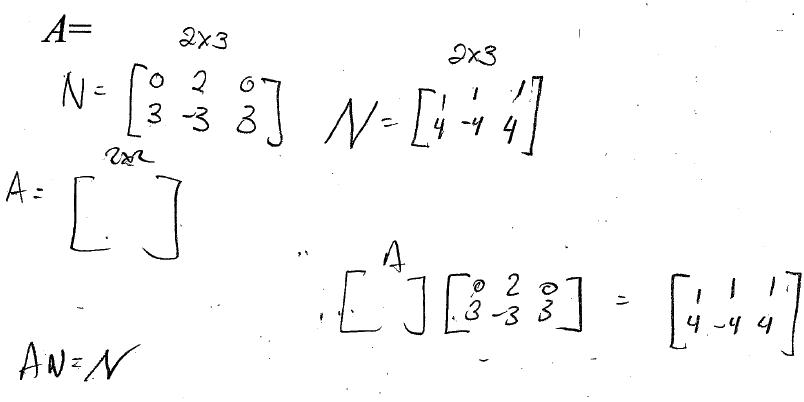 A=
2x3
N = [0 2 0
3 -3 3]
2x3
N = [1 1 1
4 -4 4]
2x2
A = [ ]
A
[ ] [0 2 0
3 -3 3] = [1 1 1
4 -4 4]
AN = N